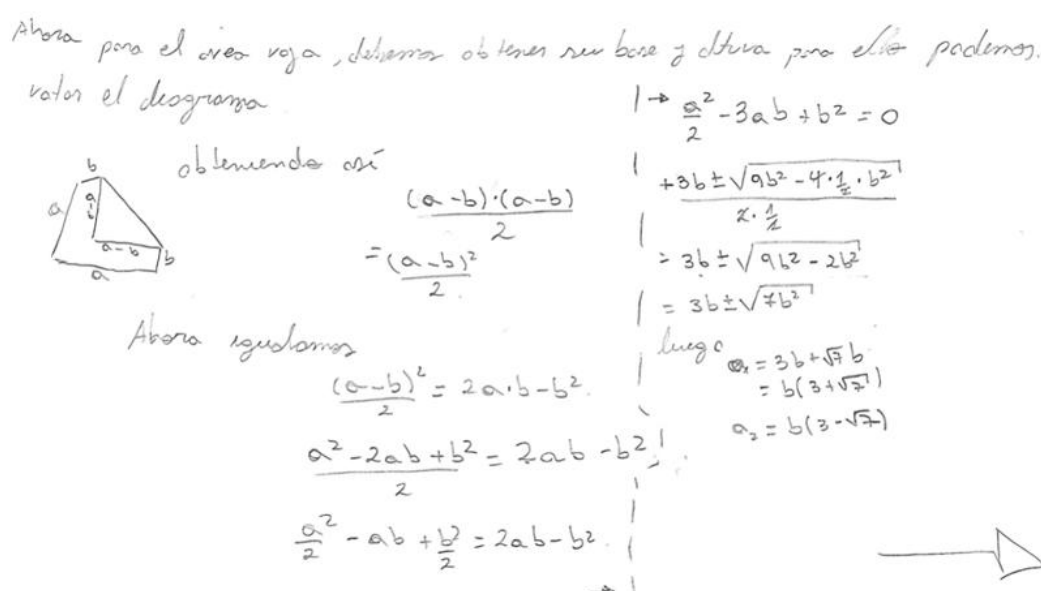 Ahora para el area roja, debemos obtener su base y altura para ello podemos.
rotar el diagrama
obteniendo así
b
a
a-b
a-b
b
a
(a-b)·(a-b)/2
= (a-b)²/2
Ahora igualamos
(a-b)²/2 = 2a·b-b².
(a²-2ab+b²)/2 = 2ab-b²
a²/2 - ab + b²/2 = 2ab-b².
→ a²/2 - 3ab + b² = 0
(+3b ± √(9b² - 4·1/2·b²))/(2·1/2)
= 3b ± √(9b² - 2b²)
= 3b ± √(7b²)
luego a₁ = 3b+√7 b
= b(3+√7)
a₂ = b(3-√7)